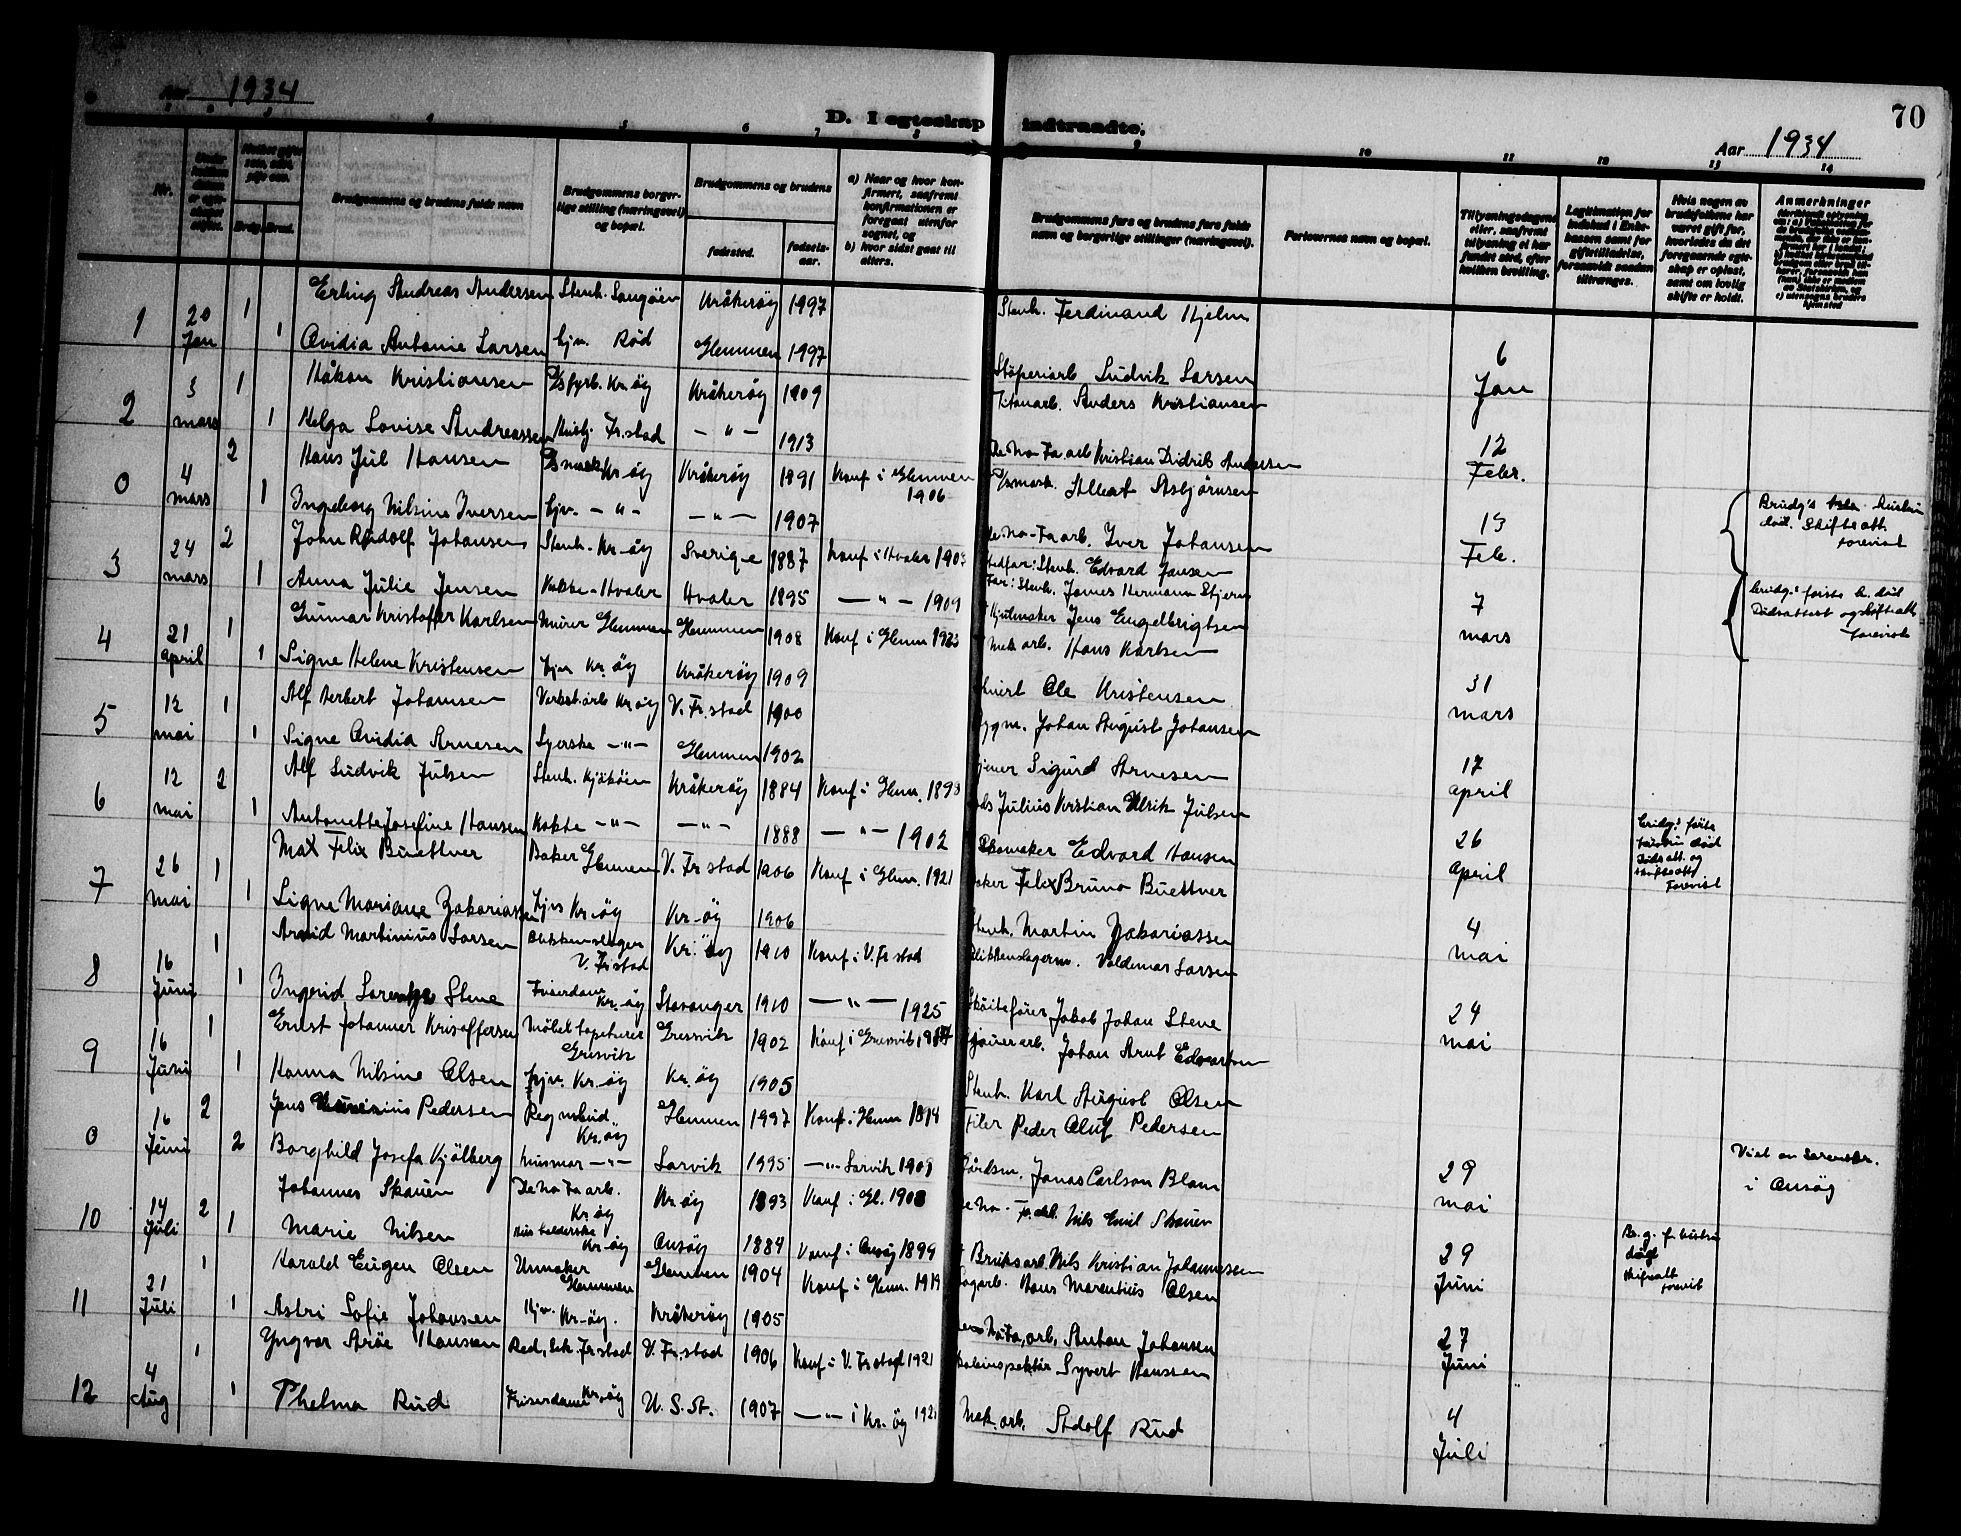 Aar 1934
D. I egteskap indtraadte.
70
Aar 1934
Nr.
Brudg. Brud.
Brudgommens og brudens fulde navn
Brudgommens borgerlige stilling (næringsvei) og bopæl.
Brudgommens og brudens
fødested.
fødselsaar.
a) Naar og hvor konfirmert, saafremt konfirmationen er foregaat utenfor sognet, og
b) hvor sidst gaat til alters.
Brudgommens fars og brudens fars fulde navn og borgerlige stillinger (næringsvei).
Forlovernes navn og bopæl.
Tillysningsdagene eller, saafremt tillysning ei har fundet sted, efter hvilken bevilling.
Legitimation for indskud i Enkekassen samt for giftetilladelse, forsaavidt saadan tiltrænges.
Hvis nogen av brudefolkene har været gift før, hvorledes da det foregaaende egteskap er opløst, samt om lovlig skifte er holdt.
Anmerkninger
1 20 Jan 1 Erling Andreas Andersen Stenh. Kråkerøy 1997 Stenh. Ferdinand Hjelm 6 Jan
1 Ovidia Antonie Larsen Hjv. Rød Glemmen 1997 Støperiarb Ludvik Larsen
2 3 mars 1 Håkon Kristiansen Kr. øy Kråkerøy 1909 Titanarb. Anders Kristiansen 12 Febr.
1 Helga Lovise Andreassen Hushj. Fr.stad — " — 1913 De No Fa arb Kristian Didrik Andersen
0 4 mars 2 Hans Jul Hansen Kr-øy Kråkerøy 1891 Konf i Glemmen 1906 Albert Asbjørnsen 13 Feb.
1 Ingeborg Nilsine Iversen Hjv. — " — — " — 1907 De No-Fa arb. Iver Johansen
3 24 mars 2 John Rudolf Johansen Stenh. Kr-øy Sverige 1887 Konf i Hvaler 1903 Stedfar: Stenh. Edvard Jansen 7 mars
Far: Stenh. Johannes Hermann Stjern
1 Anna Julie Jensen Kokke-Hvaler Hvaler 1895 — " — 1909 Hjulmaker Jens Engelbrigtsen
4 21 april 1 Gunnar Kristoffer Karlsen Murer Glemmen Glemmen 1908 Konf i Glem 1923 Mek arb. Hans Karlsen 31 mars
1 Signe Helene Kristensen Hjv Kr. øy Kråkerøy 1909 Ole Kristensen
5 12 mai 1 Alf Herbert Johansen Verkst.arb Kr.øy V. Fr.stad 1900 Bygm. Johan August Johansen 17 april
1 Signe Ovidia Arnesen Syerske — " — Glemmen 1902 Sigurd Arnesen
6 12 mai 2 Alf Ludvik Julsen Stenh. Kjøkøen Kråkerøy 1884 Konf i Glem. 1898 Julius Kristian Ulrik Julsen 26 april
1 Antonette Josefine Hansen Kokke — " — — " — 1888 — " — 1902 Skomaker Edvard Hansen
7 26 mai 1 Max Felix Buettner Baker Glemmen V. Fr stad 1906 Konf i Glem. 1921 Baker Felix Bruno Buettner 4 mai
1 Signe Mariane Zakariassen Hjv Kr-øy Kr-øy 1906 Stenh. Martin Zakariassen
8 16 Juni 1 Arvid Martinius Larsen Blikkenslager V. Fr stad Kr. øy 1910 Konf i V. Fr stad Blikkenslagerm. Valdemar Larsen 24 mai
1 Ingrid Lorentze Stene Friserdame Kr.øy Stavanger 1910 — " — 1925 Skøitefører Jakob Johan Stene
9 16 Juni 1 Ernst Johanner Kristoffersen Møbeltapetserer Gresvik Gresvik 1902 Konf i Gresvik Johan Arnt Edvartsen
1 Hanna Nilsine Olsen Hjv. Kr-øy Kr. øy 1905 Stenh. Karl August Olsen
0 16 Juni 2 Jens Pedersen Kr.øy Glemmen 1997 Konf. Glem 1914 Filer Peder Oluf Pedersen 29 mai
2 Borghild Josefa Kjølberg husmor — " — Larvik 1995 — " — Larvik 1909 Gårdsm. Jonas Carlson Blom
10 14 Juli 2 Johannes Skauen De No Fa arb. Kr øy Kr. øy 1893 Konf i Gl. 1908 De No- Fa. arb. Nils Emil Skauen 29 Juni
1 Marie Nilsen Husholderske Kr-øy Onsøy 1884 Konf i Onsøy 1899 Bruksarb. Nils Kristian Johannessen
11 21 Juli 1 Harald Eugen Olsen Urmaker Glemmen Glemmen 1904 Konf i Glem. 1919 Sagarb. Hans Marentius Olsen 27 Juni
1 Astri Sofie Johansen Hjv. Kr-øy. Kråkerøy 1905 De No Fa. arb. Anton Johansen
12 4 Aug 1 Yngvar Arøe Hansen Red. sek. Fr.stad V. Fr.stad 1906 Konf i V. Fr stad 1921 Skoleinspektør Syvert Hanssen 4 Juli
1 Thelma Rud Friserdame Kr.øy U. S. St. 1907 — " — i Kr. øy 1921 Mek. arb. Adolf Rud
død. Skifteatt. forevist
brudg.s første h. død
Dødsattest og skifteatt forevist
brudg.s første hustru død
Dødsatt. og skifteatt forevist
Viet av sorenskr. i Onsøy
Br. g. f. hustru død
skifteatt forevist